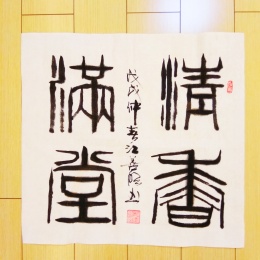 清香
滿堂
戊戌仲春江
书